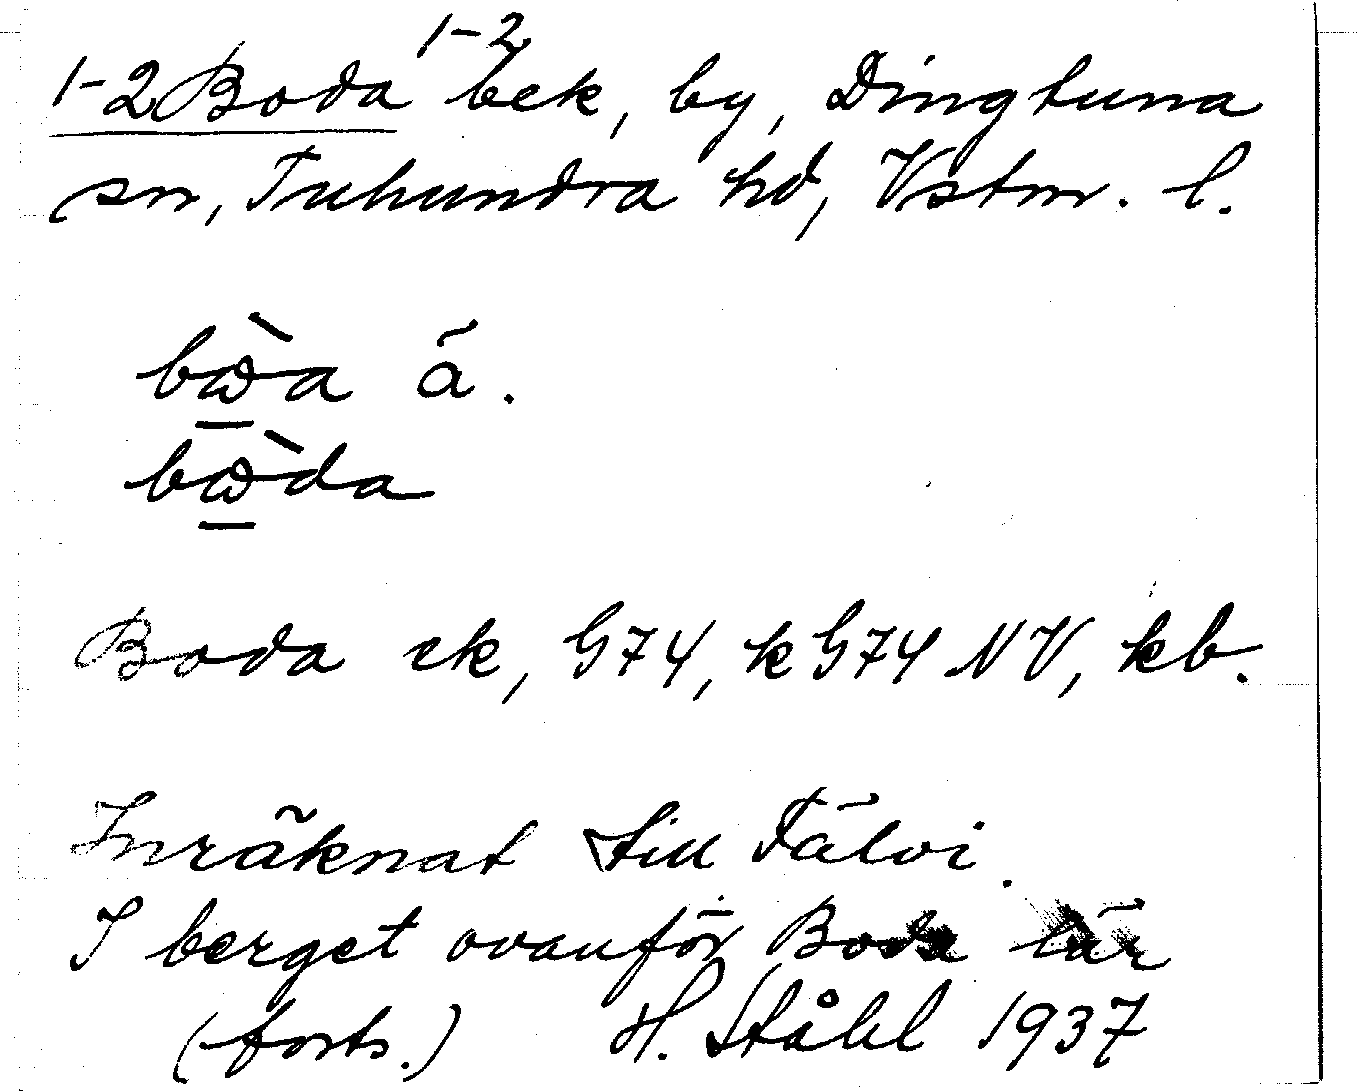 1-2
1-2 Boda bek, by, Dingtuna
sn, Tuhundra hd, Vstm. l.
bὼ̲a ä.
bὼ̲da
Boda ek, G74, kG74 NV, kb.
Inräknat till Tälvi.
I berget ovanför Boda lär
(forts.) H. Ståhl 1937